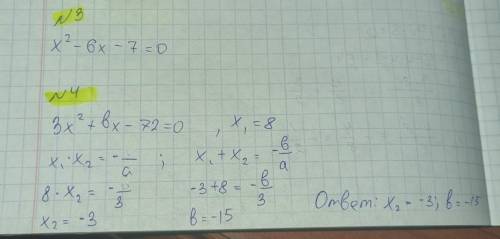 №3
x² - 6x - 7 = 0
№4
3x² + bx - 72 = 0 , x₁ = 8
x₁ · x₂ = - —/a ; x₁ + x₂ = -b/a
8 · x₂ = - —/3 -3 + 8 = -b/3
x₂ = -3 b = -15 Ответ: x₂ = -3; b = -15